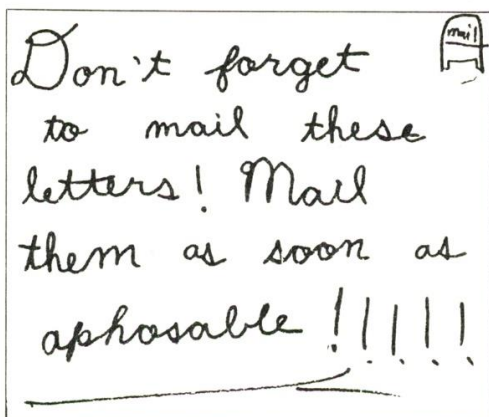 mail
Don't forget
to mail these
letters! Mail
them as soon as
aphosable !!!!!